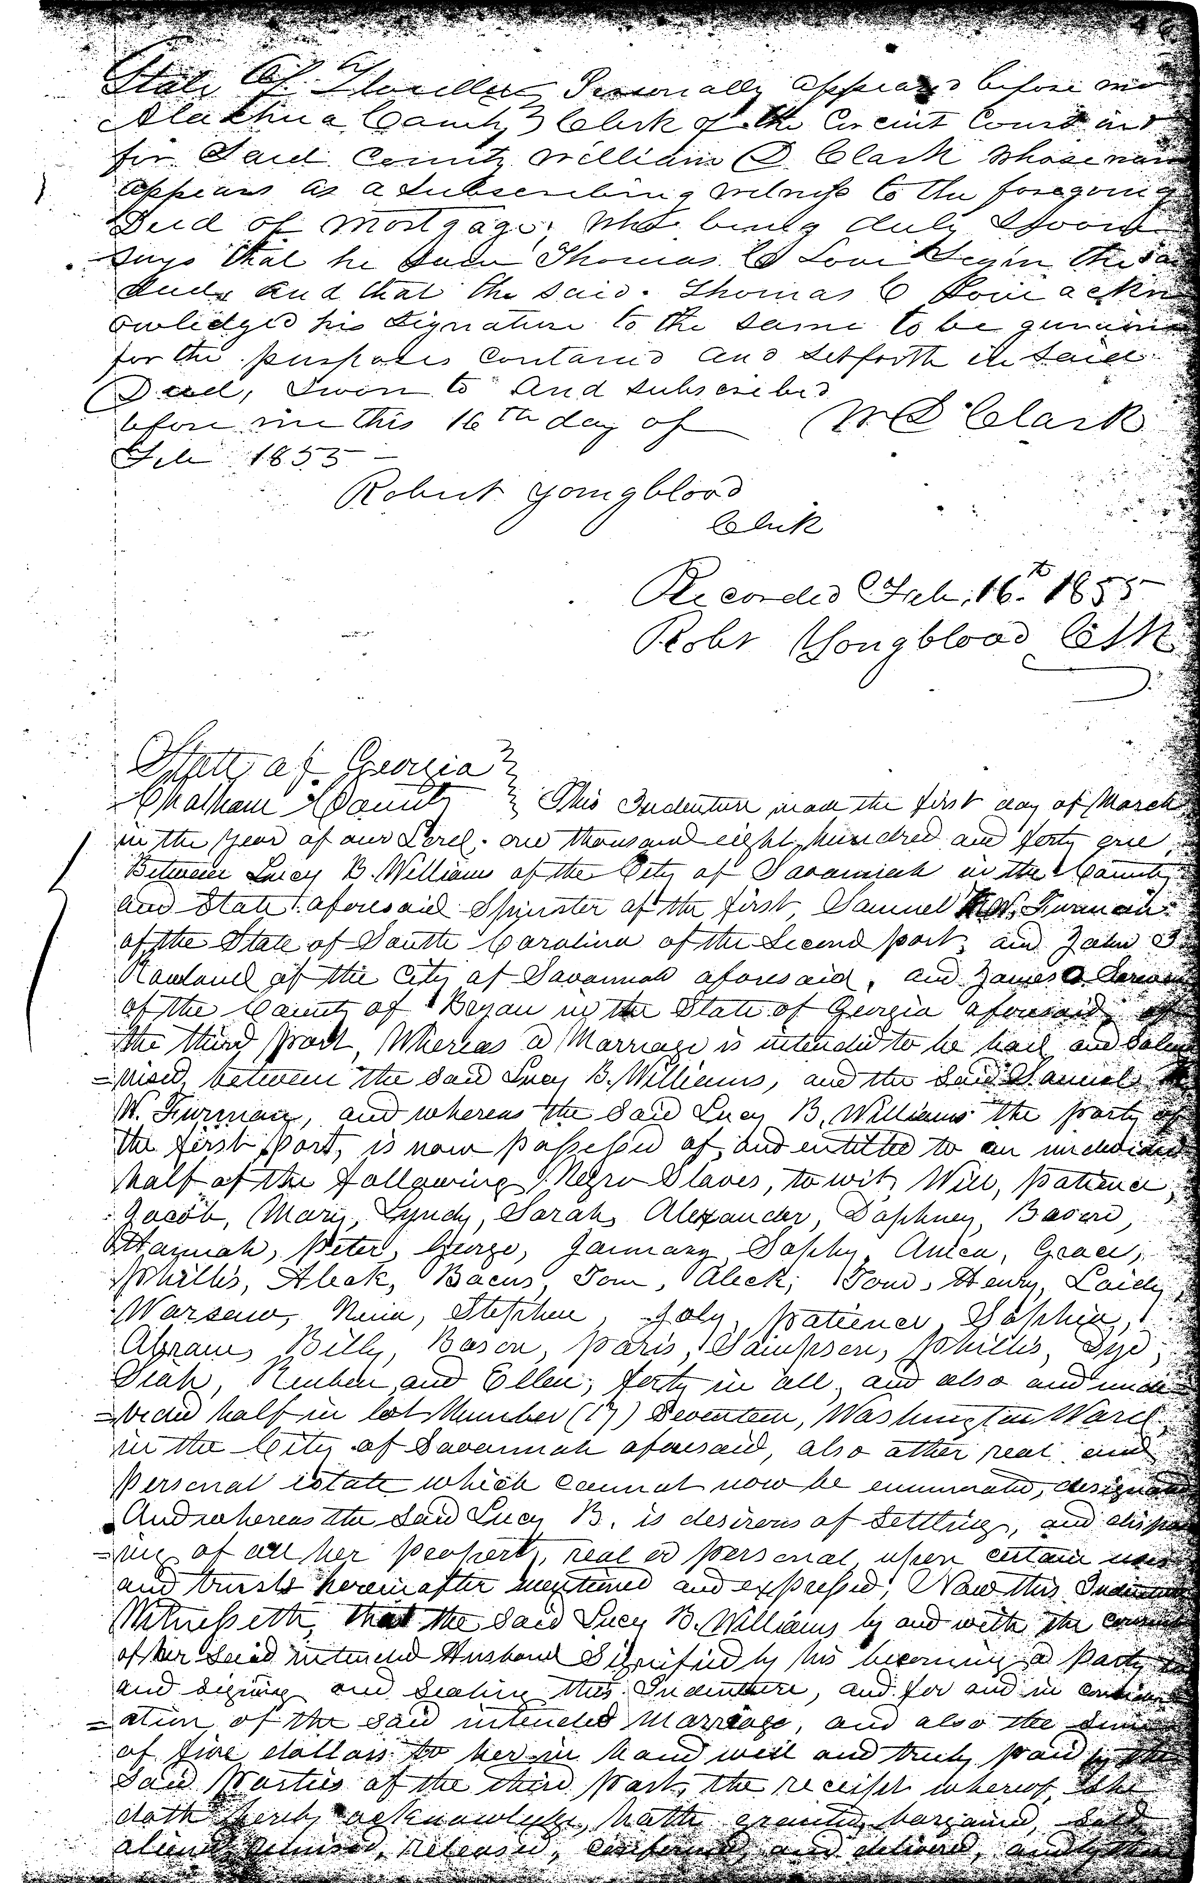 State of Florida Personally appeared before me
Alachua County } Clerk of the Circuit Court and
for Said County William S Clark whose name
appears as a subscribing witness to the foregoing
Deed of Mortgage, Who being duly Sworn
says that he saw Thomas C Love Sign the Said
deed and that the said Thomas C Love ackn
owledged his Signature to the same to be genuine
for the purposes contained and setforth in said
Deed, Sworn to and subscribed
before me this 16th day of W S Clark
Feb 1855 —
Robert Yongblood
Clerk
Recorded Feb, 16th 1855
Robt Yongblood Clk
State of Georgia }
Chatham County } This Indenture made the first day of March
in the year of our Lord, one thousand eight hundred and forty one,
Between Lucy B. Williams of the City of Savannah in the County
and State aforesaid Spinster of the first, Samuel W. Furman
of the State of South Carolina of the Second part, and John S
Rowland of the City of Savannah aforesaid, and James
of the County of Bryan in the State of Georgia aforesaid, of
the third part, Whereas a Marriage is intended to be had and Solem
=nised, between the said Lucy B. Williams, and the said Samuel
W. Furman, and whereas the Said Lucy B. Williams the party of
the first part, is now possessed of, and entitled to an undivided
half of the following Negro Slaves, to wit, Will, patience,
Jacob, Mary, Lyndy, Sarah, Alexander, Daphney,
Hannah, Peter, George, January, Sophy, Grace,
phillis, Aleck, Bacus, Tom, Aleck, Tom, Henry,
Warsaw, Nina, Stephen, July, patience, Sophia,
Abram, Billy, Bason, paris, Sampson, phillis,
Leah, Reuben, and Ellen, forty in all, and also and undi
=vided half in lot Number (17) Seventeen, Washington Ward,
in the City of Savannah aforesaid, also other real and
personal estate which cannot now be enumerated, designated
And whereas the Said Lucy B. is desirous of Settling, and dispos
=ing of all her property, real or personal, upon certain uses
and trusts hereinafter mentioned and expressed, Now this Indenture
Witnesseth, that the said Lucy B. Williams by and with the consent
of her said intended Husband Signified by his becoming a party to
and signing and Sealing this Indenture, and for and in consider
=ation of the said intended Marriage, and also the sum
of five dollars to her in hand well and truly paid by the
Said parties of the third part, the receipt whereof, she
doth hereby acknowledge, hath granted, bargained, Sold,
aliened, remised, released, confirmed, and delivered, and by these